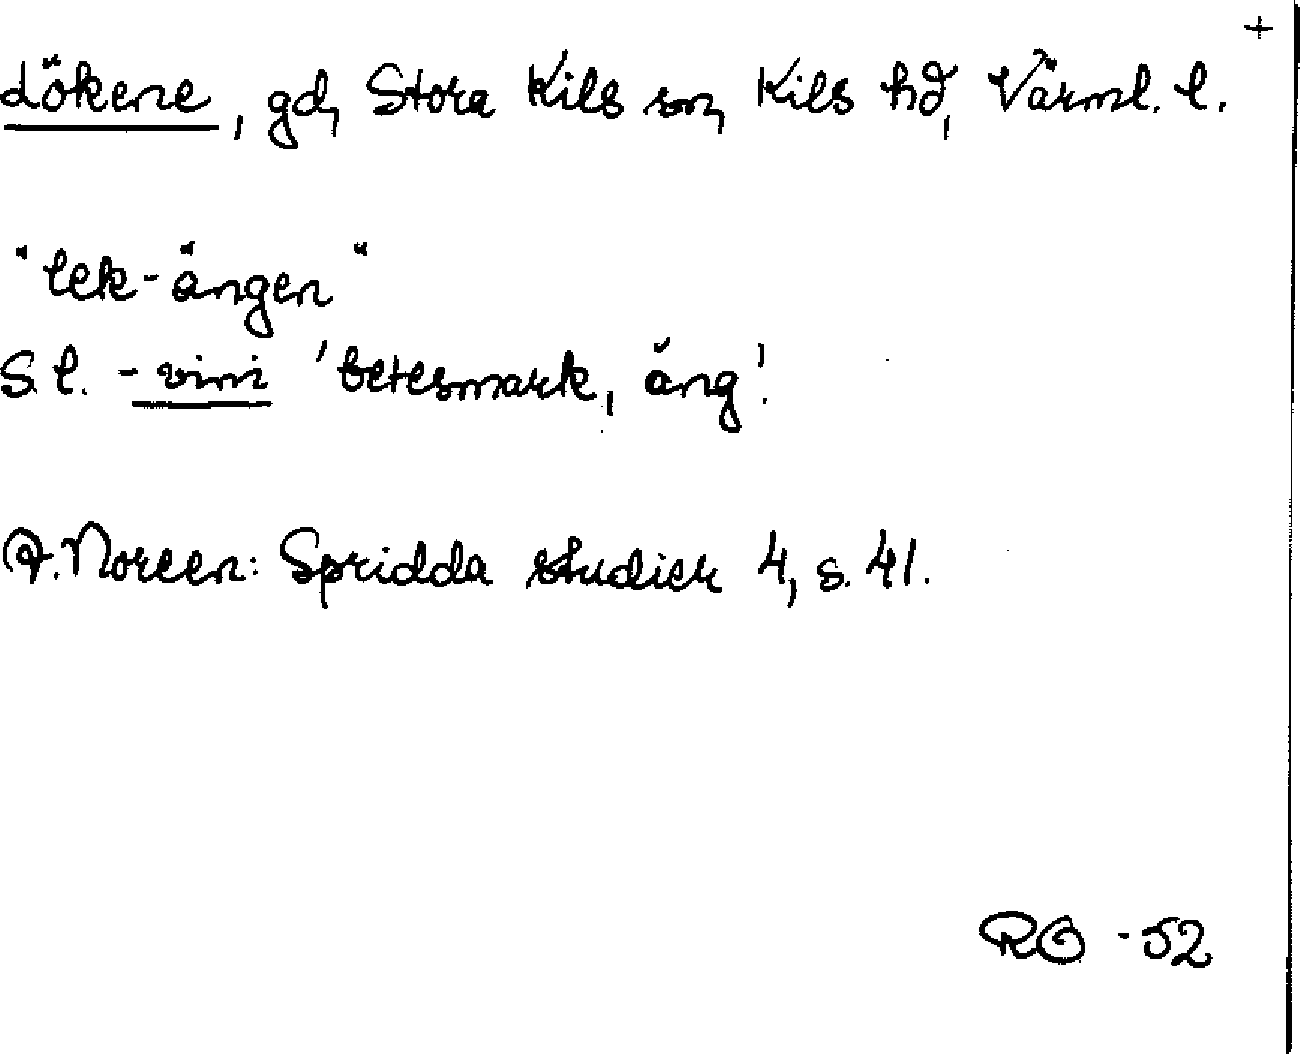 +
Lökene, gd, Stora Kils sn, Kils hd, Värml. l.
"lek-ängen"
S. l. -vini 'betesmark, äng'.
A. Noreen: Spridda studier 4, s. 41.
RO -52